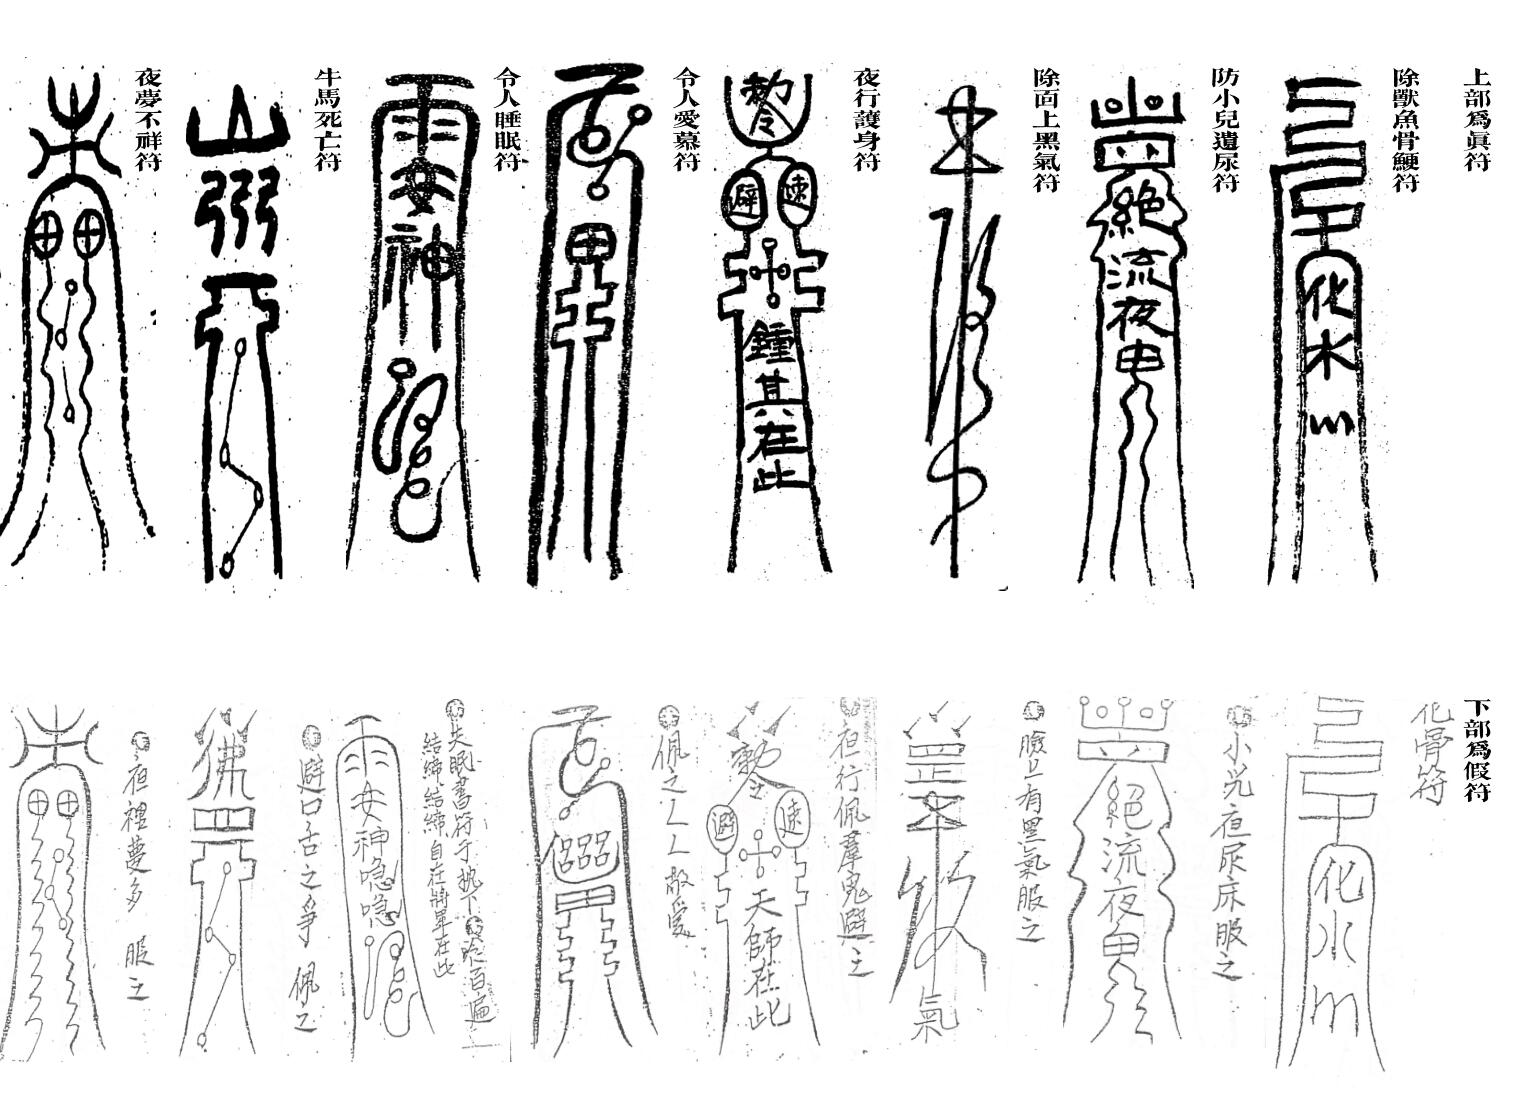 上部為眞符
除獸魚骨鯁符
化水
防小兒遺尿符
絕流夜
除面上黑氣符
夜行護身符
勅令
速
避
鍾其在此
令人愛慕符
令人睡眠符
安神
牛馬死亡符
夜夢不祥符
下部為假符
化骨符
化水
小児夜尿床服之
絕流夜
臉上有黑氣服之
氣
夜行佩羣鬼避之
速
避
天師在此
佩之人人敬愛
失眠書符于枕下
唸百遍
結締結締自在將軍在此
女神
避口舌之爭 佩之
佛
夜裡夢多 服之